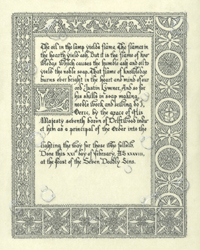 The oil in the lamp yields flame. The flames in
the hearth yield ash. But it is the flame of know
ledge which causes the humble ash and oil to
yield the noble soap. That flame of knowledge
burns ever bright in the heart and mind of our
Lord Justin Lymner. And so for
his skills in soap making,
needle work and willing do I,
by the grace of His
Majesty seventh baron of Driftwood make
of him as a principal of the Order into the
lighting the way for those who follow.
Done this day of February, AS XXXVIII,
at the feast of the Seven Deadly Sins.